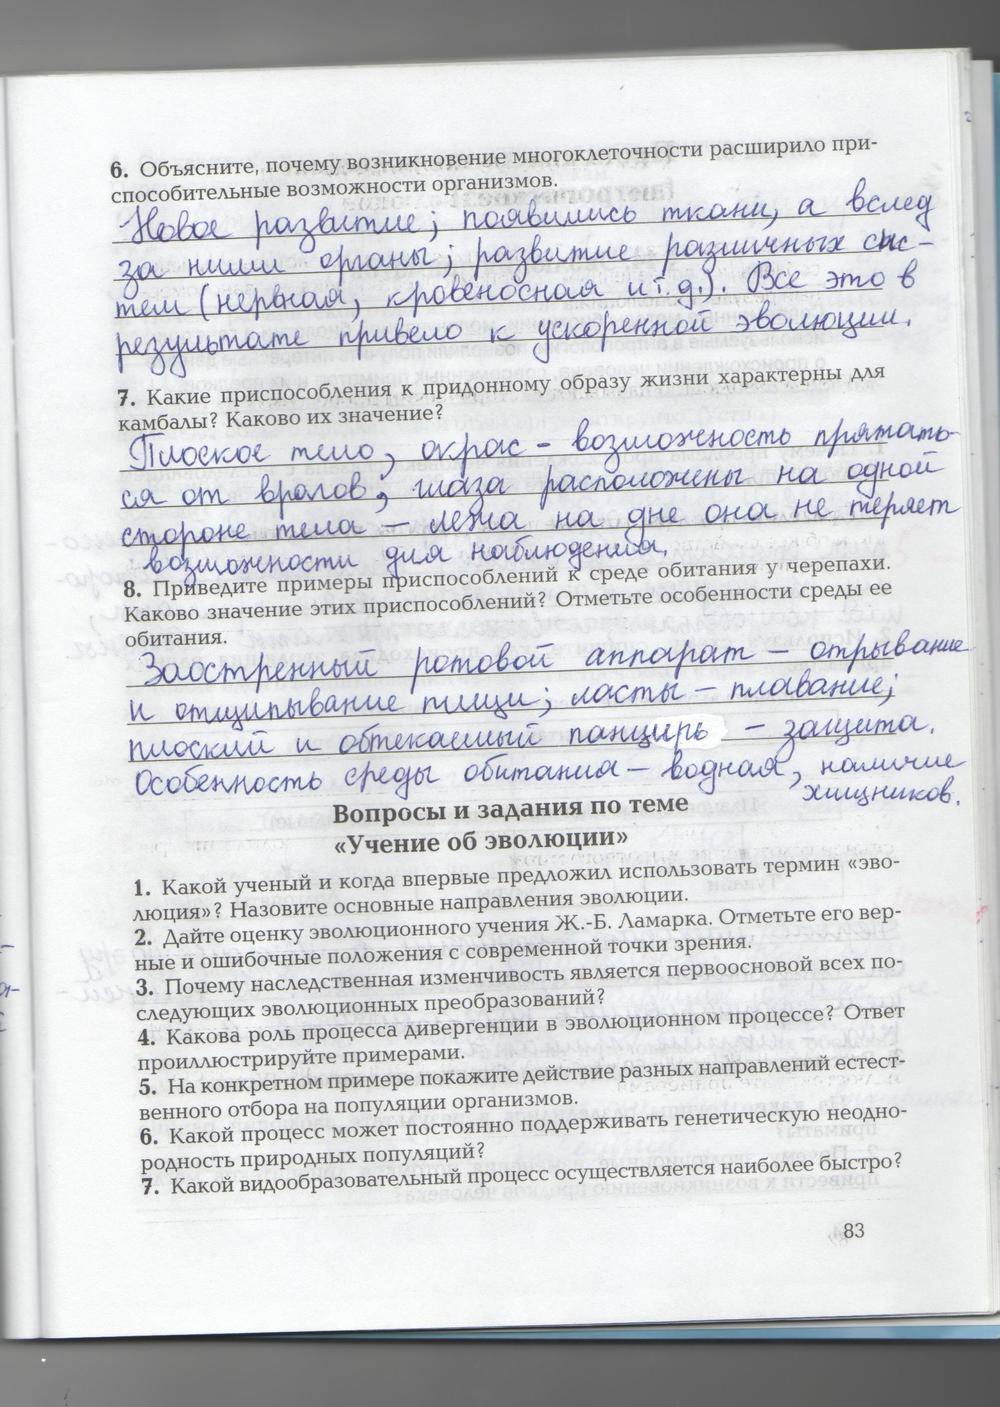 6. Объясните, почему возникновение многоклеточности расширило при-
способительные возможности организмов.
Новое развитие; появились ткани, а вслед
за ними органы; развитие различных сис-
тем (нервная, кровеносная и т.д.). Все это в
результате привело к ускоренной эволюции.
7. Какие приспособления к придонному образу жизни характерны для
камбалы? Каково их значение?
Плоское тело, окрас - возможность прятать-
ся от врагов, глаза расположены на одной
стороне тела - лежа на дне она не теряет
возможности для наблюдения.
8. Приведите примеры приспособлений к среде обитания у черепахи.
Каково значение этих приспособлений? Отметьте особенности среды ее
обитания.
Заостренный ротовой аппарат - отрывание
и отщипывание пищи; ласты - плавание;
плоский и обтекаемый панцирь - защита.
Особенность среды обитания - водная, наличие
хищников.
Вопросы и задания по теме
«Учение об эволюции»
1. Какой ученый и когда впервые предложил использовать термин «эво-
люция»? Назовите основные направления эволюции.
2. Дайте оценку эволюционного учения Ж.-Б. Ламарка. Отметьте его вер-
ные и ошибочные положения с современной точки зрения.
3. Почему наследственная изменчивость является первоосновой всех по-
следующих эволюционных преобразований?
4. Какова роль процесса дивергенции в эволюционном процессе? Ответ
проиллюстрируйте примерами.
5. На конкретном примере покажите действие разных направлений естест-
венного отбора на популяции организмов.
6. Какой процесс может постоянно поддерживать генетическую неодно-
родность природных популяций?
7. Какой видообразовательный процесс осуществляется наиболее быстро?
83